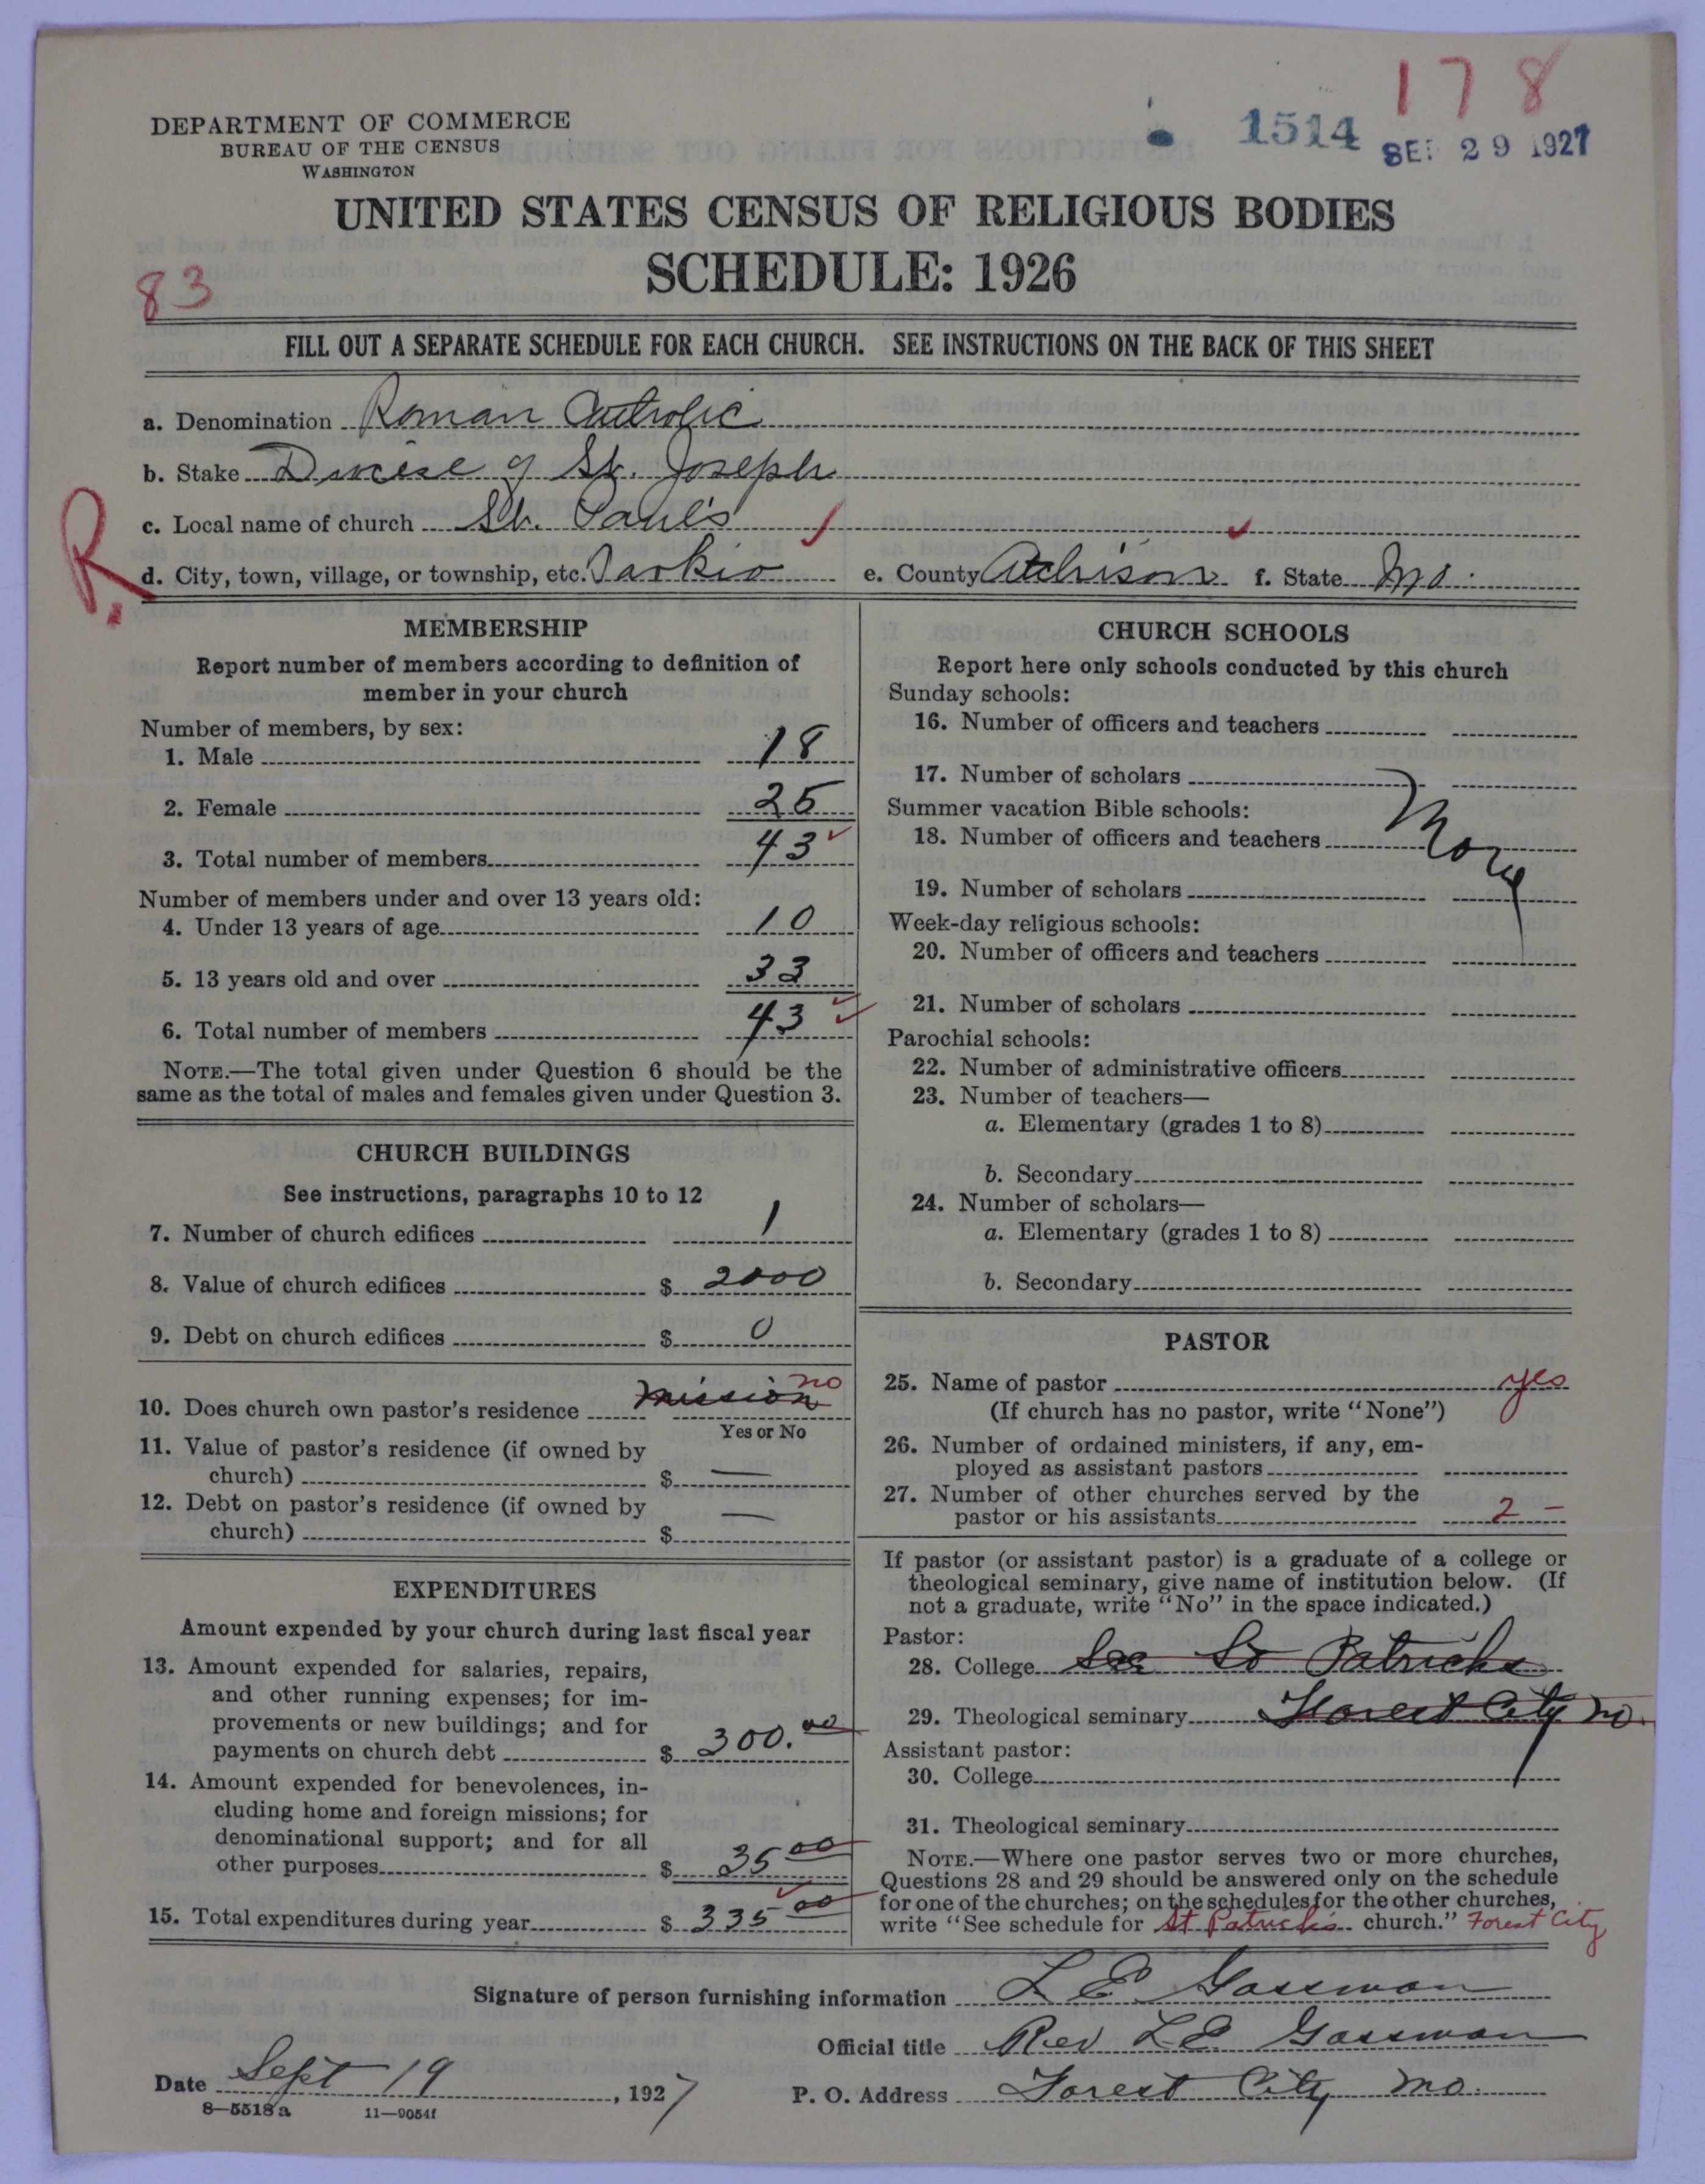 178
1514 SEP 29 1927
DEPARTMENT OF COMMERCE
BUREAU OF THE CENSUS
WASHINGTON
UNITED STATES CENSUS OF RELIGIOUS BODIES
SCHEDULE: 1926
83
FILL OUT A SEPARATE SCHEDULE FOR EACH CHURCH. SEE INSTRUCTIONS ON THE BACK OF THIS SHEET
a. Denomination Roman Catholic
b. Stake Diocese of St. Joseph
c. Local name of church St. Paul's
R.
d. City, town, village, or township, etc. Tarkio e. County Atchison f. State Mo.
MEMBERSHIP
Report number of members according to definition of
member in your church
Number of members, by sex:
1. Male 18
2. Female 25
3. Total number of members 43
Number of members under and over 13 years old:
4. Under 13 years of age 10
5. 13 years old and over 33
6. Total number of members 43
NOTE.—The total given under Question 6 should be the
same as the total of males and females given under Question 3.
CHURCH BUILDINGS
See instructions, paragraphs 10 to 12
7. Number of church edifices 1
8. Value of church edifices $ 2000
9. Debt on church edifices $ 0
10. Does church own pastor's residence mission no
Yes or No
11. Value of pastor's residence (if owned by
church) $ —
12. Debt on pastor's residence (if owned by
church) $ —
EXPENDITURES
Amount expended by your church during last fiscal year
13. Amount expended for salaries, repairs,
and other running expenses; for im-
provements or new buildings; and for
payments on church debt $ 300.00
14. Amount expended for benevolences, in-
cluding home and foreign missions; for
denominational support; and for all
other purposes $ 35 00
15. Total expenditures during year $ 335 00
CHURCH SCHOOLS
Report here only schools conducted by this church
Sunday schools:
16. Number of officers and teachers
17. Number of scholars
Summer vacation Bible schools:
18. Number of officers and teachers
19. Number of scholars
Week-day religious schools:
20. Number of officers and teachers
21. Number of scholars
Parochial schools:
22. Number of administrative officers
23. Number of teachers—
a. Elementary (grades 1 to 8)
b. Secondary
24. Number of scholars—
a. Elementary (grades 1 to 8)
b. Secondary
PASTOR
25. Name of pastor yes
(If church has no pastor, write "None")
26. Number of ordained ministers, if any, em-
ployed as assistant pastors
27. Number of other churches served by the
pastor or his assistants 2 —
If pastor (or assistant pastor) is a graduate of a college or
theological seminary, give name of institution below. (If
not a graduate, write "No" in the space indicated.)
Pastor:
28. College See St Patricks
29. Theological seminary Forest City Mo.
Assistant pastor:
30. College
31. Theological seminary
NOTE.—Where one pastor serves two or more churches,
Questions 28 and 29 should be answered only on the schedule
for one of the churches; on the schedules for the other churches,
write "See schedule for St Patrick's church." Forest City
Signature of person furnishing information L E Gassman
Official title Rev L E Gassman
Date Sept 19, 1927 P. O. Address Forest City Mo.
8—5518a 11—9054f